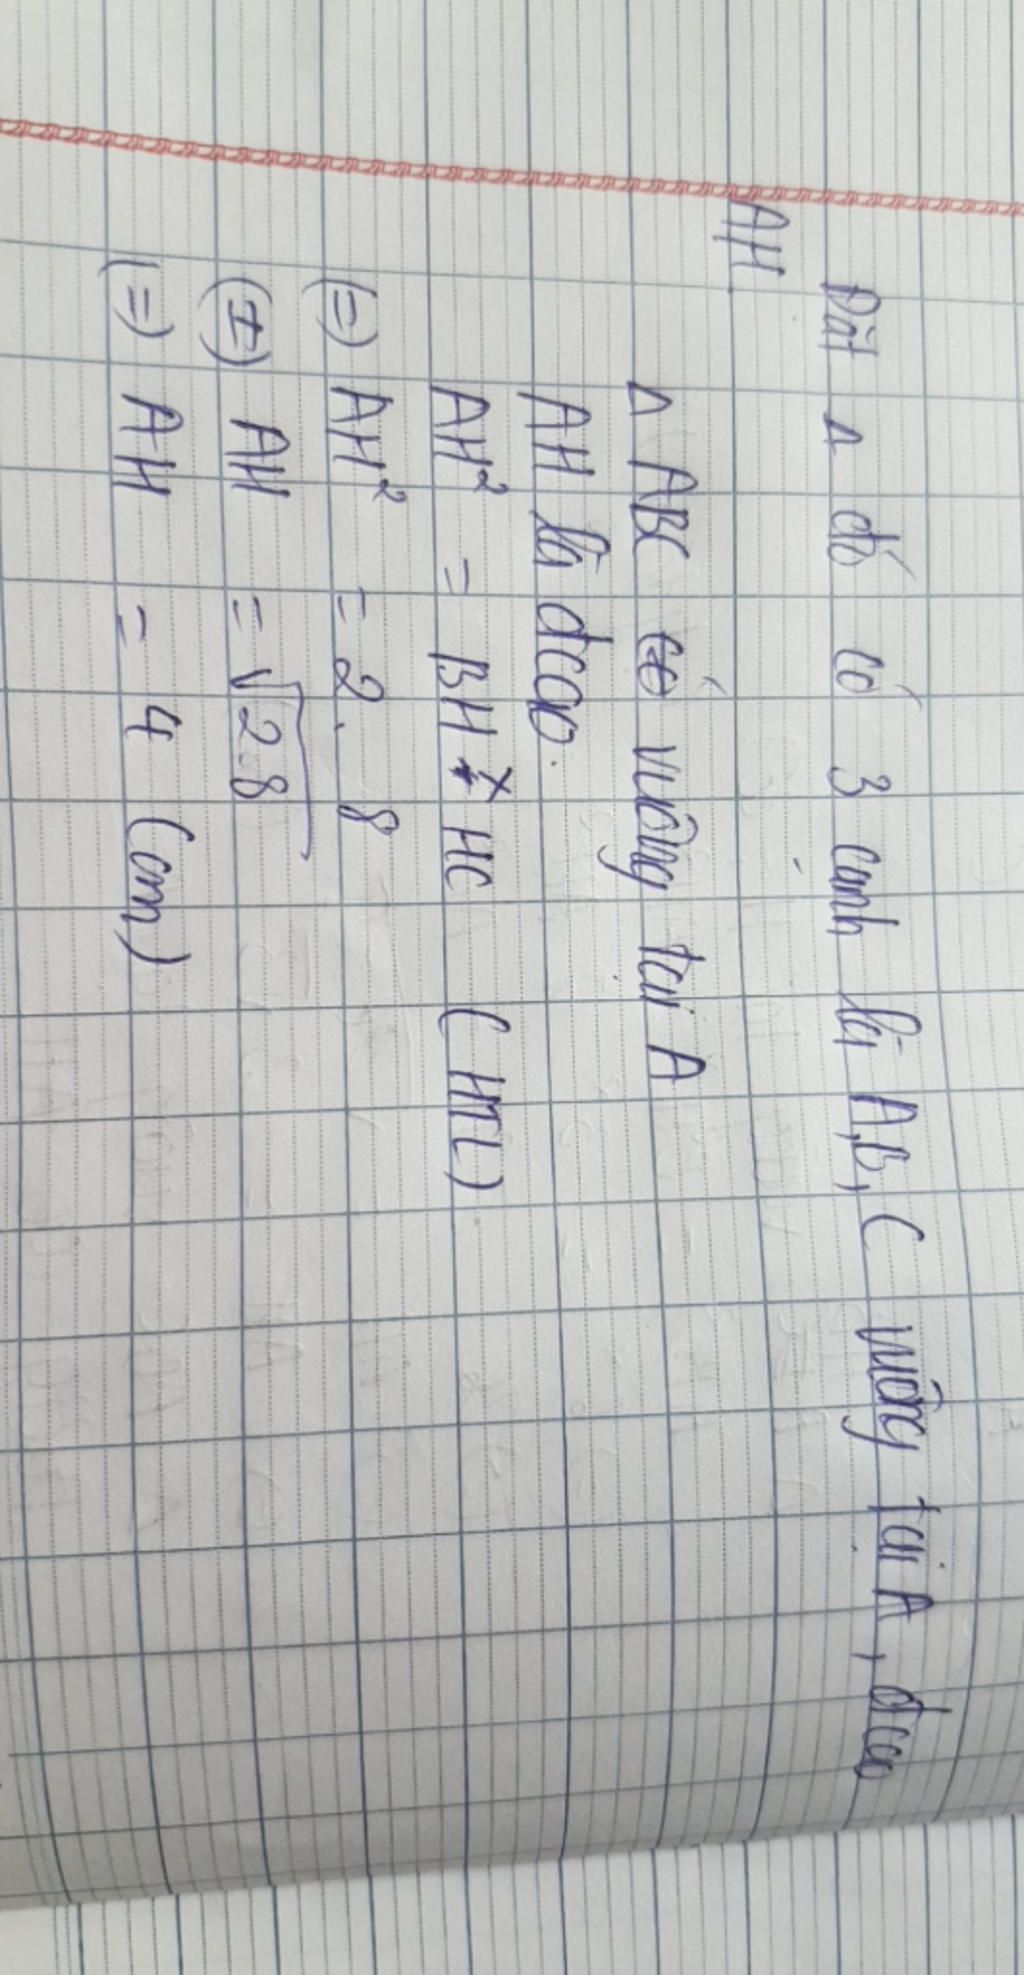 Đặt Δ đó có 3 cạnh là A,B, C vuông tại A, đcao
AH.
Δ ABC có vuông tại A
AH là đcao.
AH² = BH × HC (HTL)
(=) AH² = 2. 8
(=) AH = √2.8
(=) AH = 4 (cm)